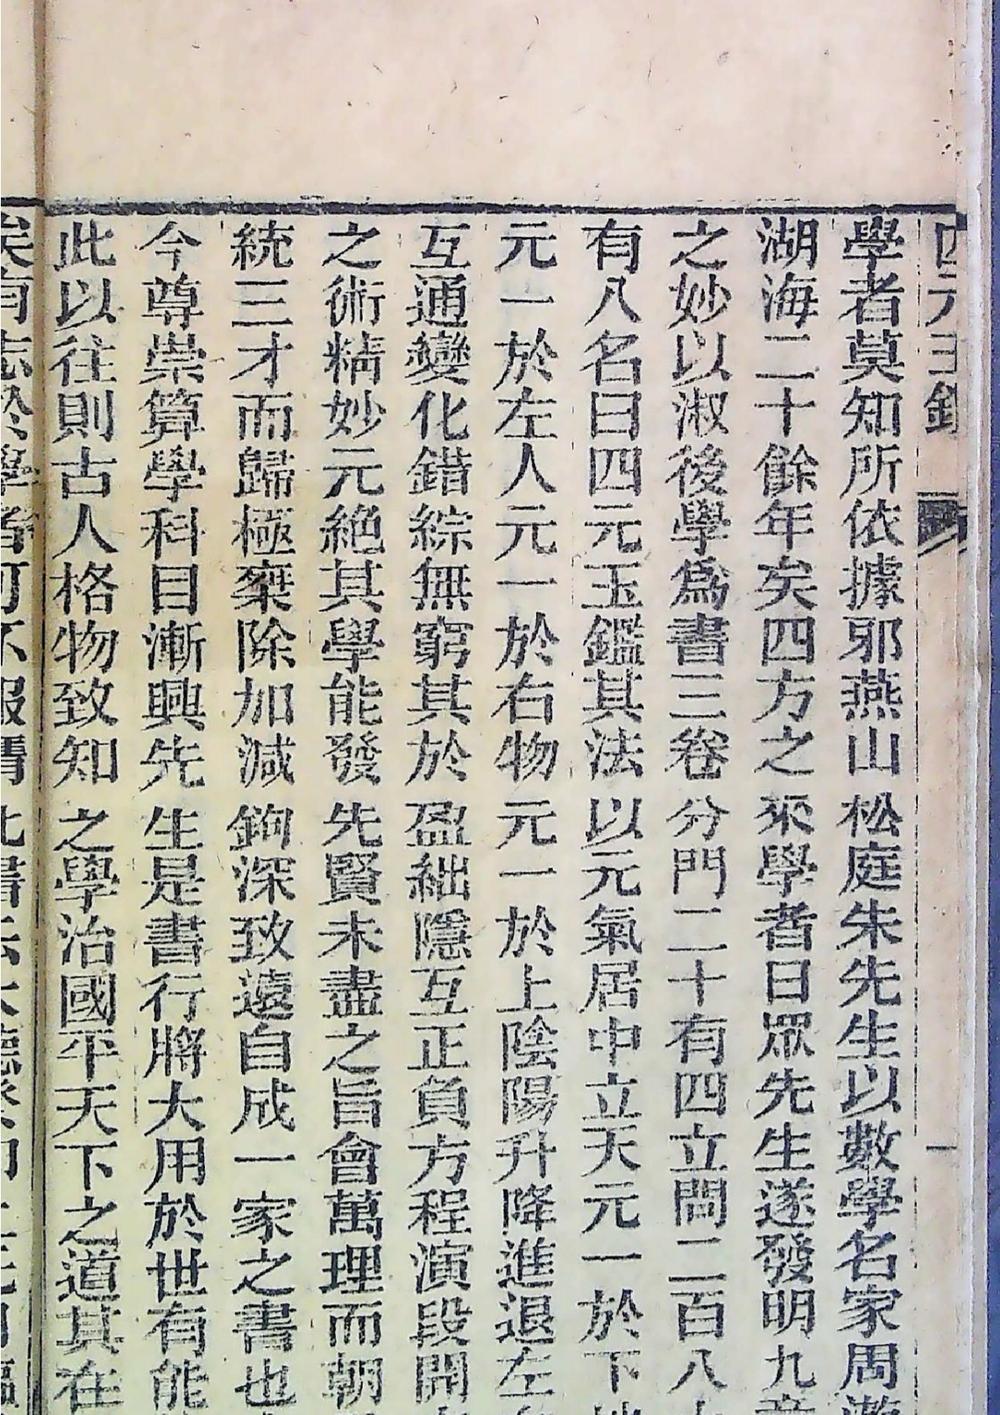 四元玉鑑
一
學者莫知所依據邪燕山松庭朱先生以數學名家周遊
湖海二十餘年矣四方之來學者日眾先生遂發明九章
之妙以淑後學爲書三卷分門二十有四立問二百八十
有八名曰四元玉鑑其法以元氣居中立天元一於下地
元一於左人元一於右物元一於上陰陽升降進退左右
互通變化錯綜無窮其於盈絀隱互正負方程演段開方
之術精妙元絶其學能發先賢未盡之旨會萬理而朝
統三才而歸極棄除加減鉤深致遠自成一家之書也
今尊崇算學科目漸興先生是書行將大用於世有能
此以往則古人格物致知之學治國平天下之道其在
矣有志於學者可不服膺此書云大德癸卯上元日臨